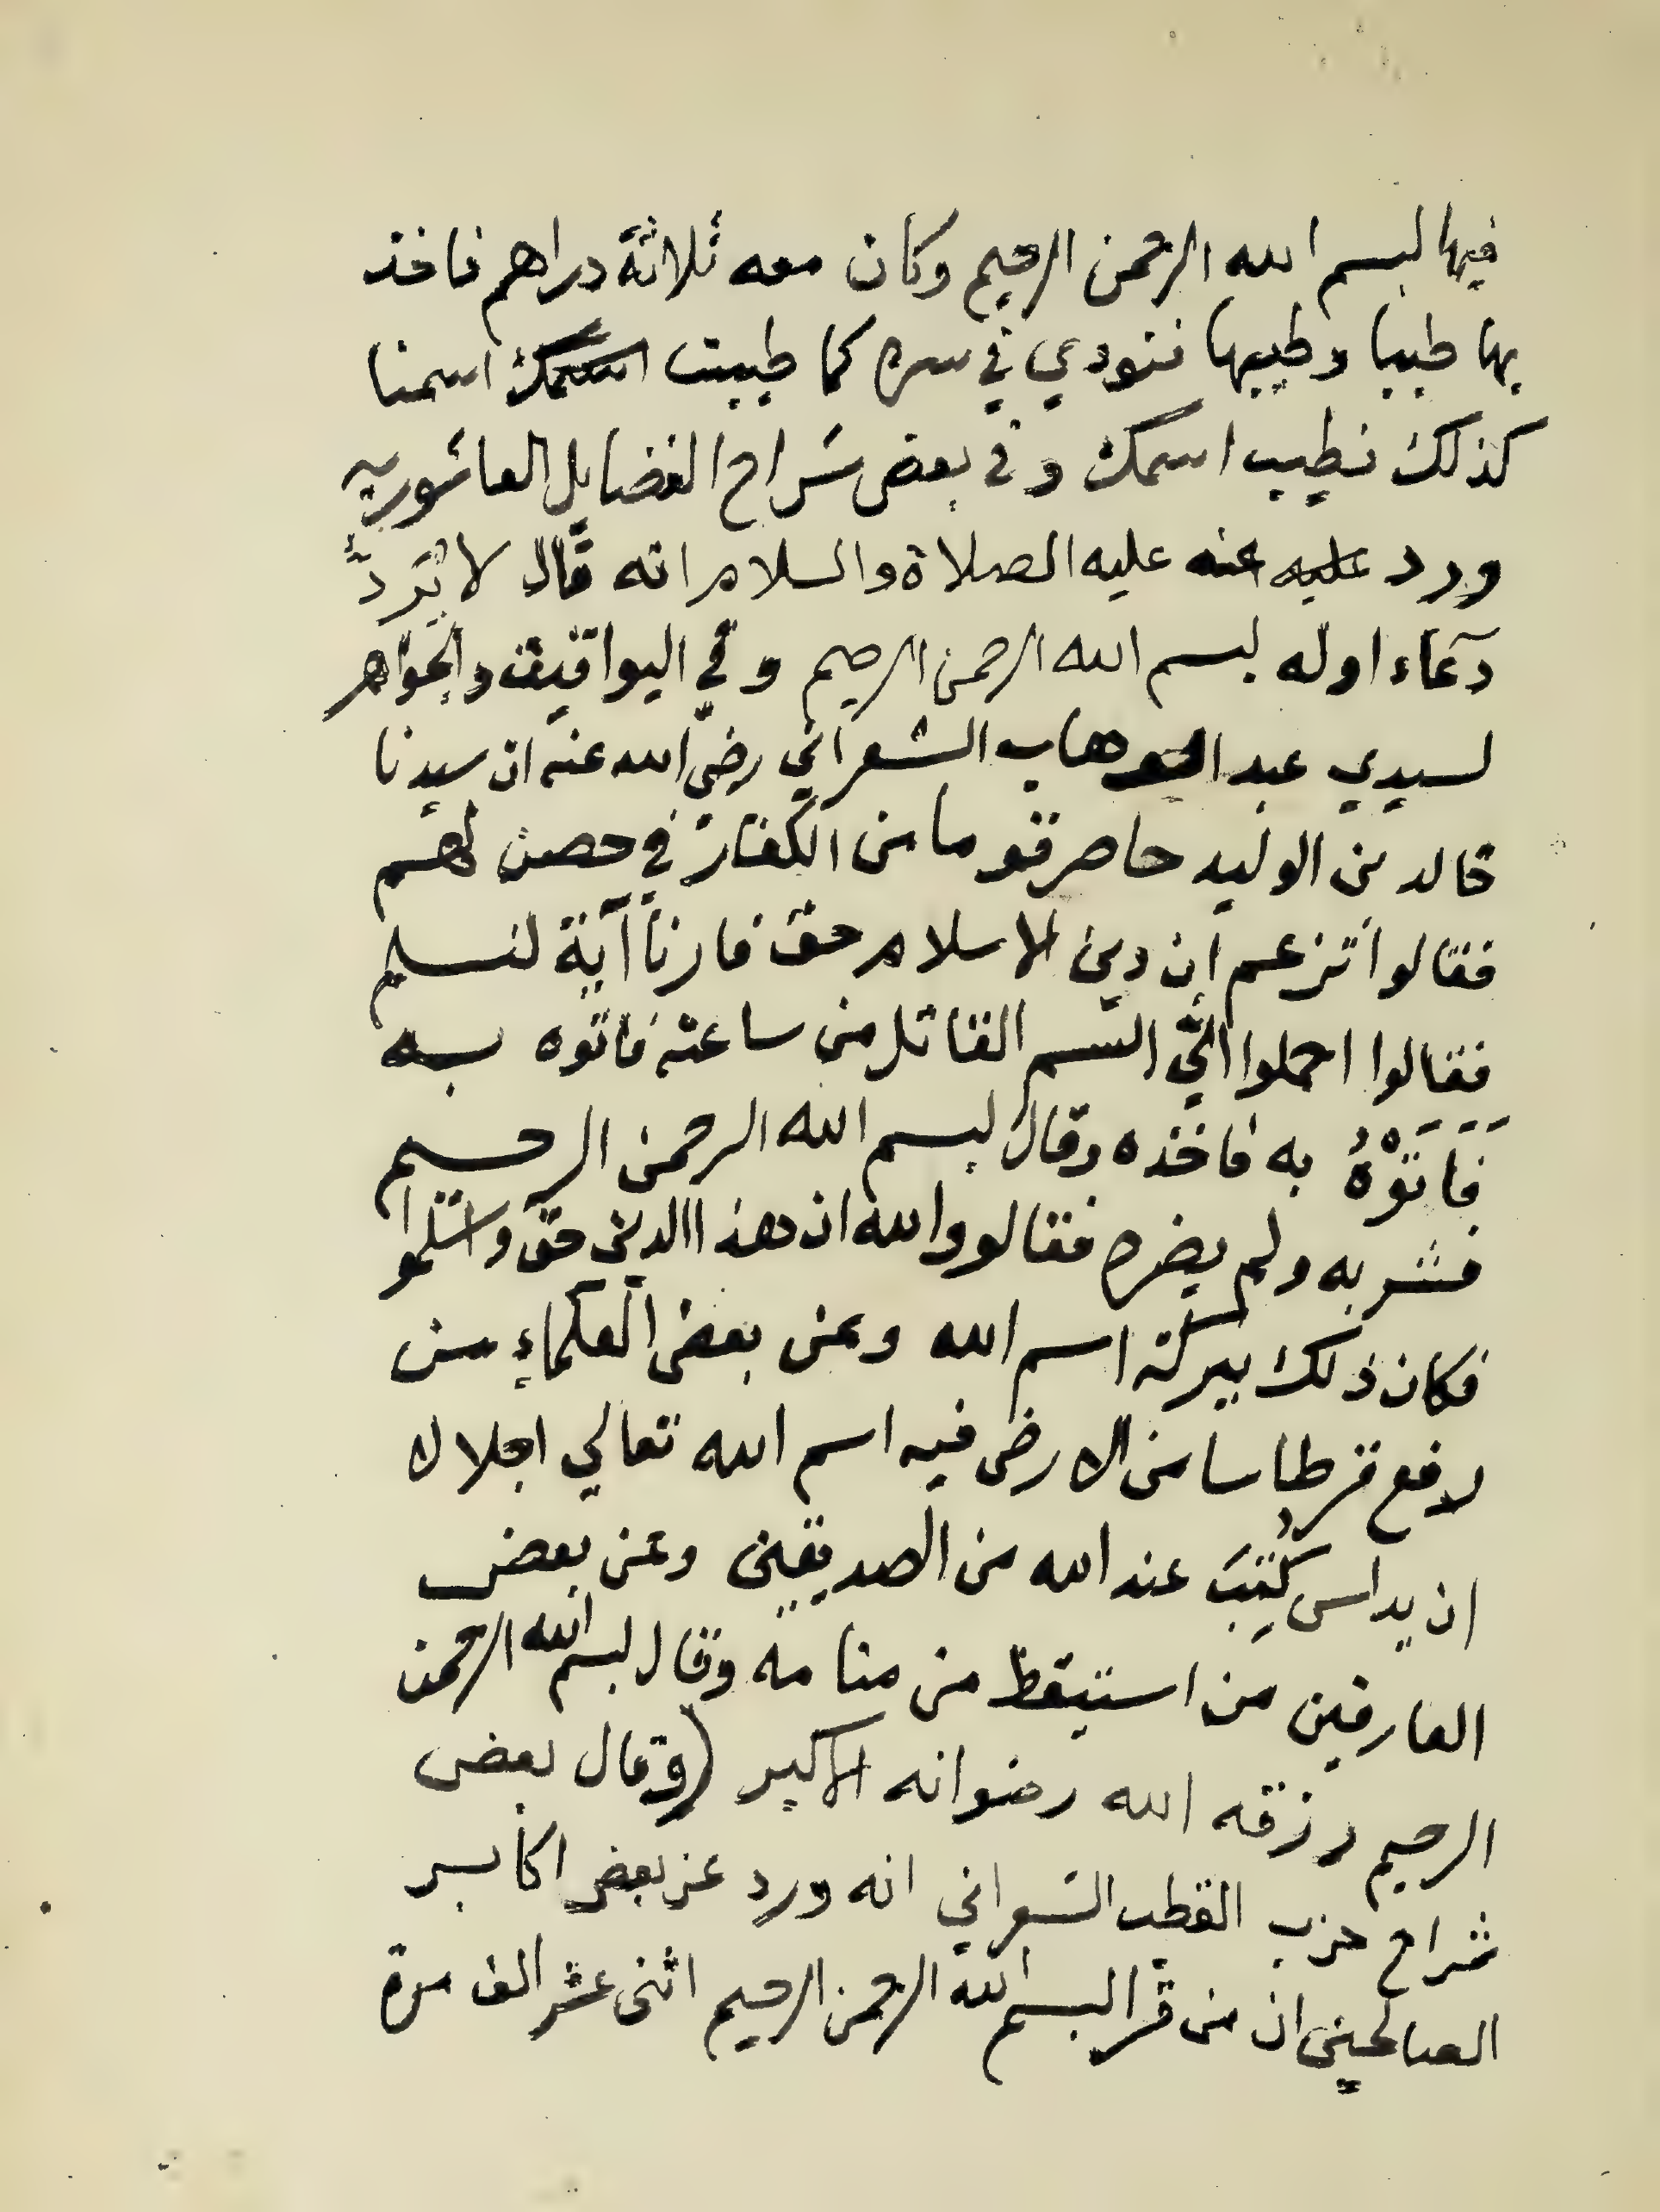 فيها بسم الله الرحمن الرحيم وكان معه ثلاثة دراهم فاخذ
بها طيبا وطيبها فنودي في سره كما طيبت اسمك اسمنا
كذلك نطيب اسمك وفي بعض شراح الفضايل العاشوريه
ورد عليه عنه عليه الصلاة والسلام انه قال لا يُرَدُّ
دعاء اوله بسم الله الرحمن الرحيم وفي اليواقيت والجواهر
لسيدي عبد الوهاب الشعراني رضي الله عنه ان سيدنا
خالد بن الوليد حاصر قوما من الكفار في حصن لهم
فقالوا تزعم ان دين الاسلام حق فارنا آية لنسلم
فقالوا احملوا الي السم القاتل من ساعته فاتوه به
فَاَتَوْهُ به فاخذه وقال بسم الله الرحمن الرحيم
فشربه ولم يضره فقالو والله ان هذا الدين حق واسلموا
فكان ذلك ببركة اسم الله وعن بعض العلماء من
رفع قرطاسا من الارض فيه اسم الله تعالي اجلالا
ان يداس كُتِبَ عند الله من الصديقين وعن بعض
العارفين من استيقظ من منامه وقال بسم الله الرحمن
الرحيم رزقه الله رضوانه الاكبر (وقال بعض
شراح حزب القطب الشعراني انه ورد عن بعض اكابر
الصالحين ان من قرا بسم الله الرحمن الرحيم اثنى عشر الف مرة